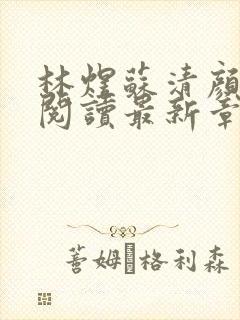 林煋蘇清顏
閱讀最新章
薈姆·格利森